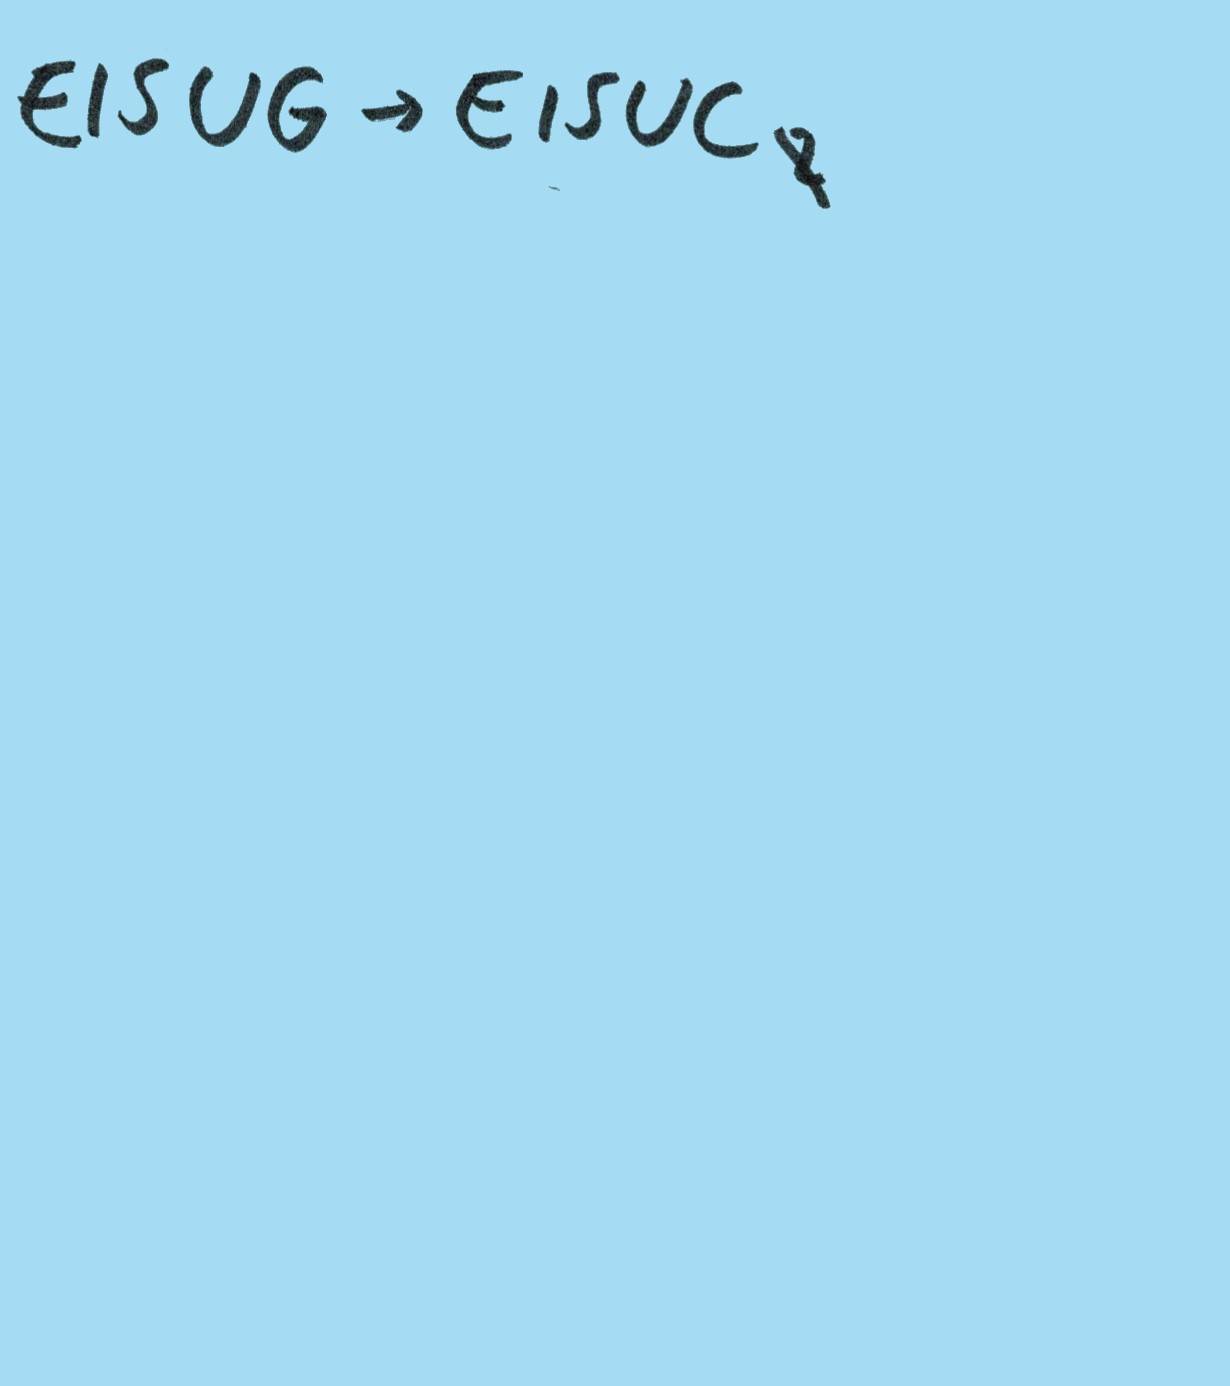 EISUG → EISUC